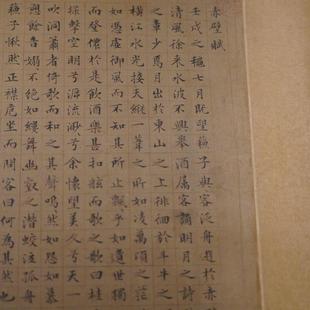 赤壁賦
壬戌之穐七月既望蘓子與客泛舟遊於赤壁
清風徐來水波不興舉酒属客誦明月之詩
之章少焉月出於東山之上徘徊於斗牛之
橫江水光接天縱一葦之所如凌萬頃之茫
如憑虛御風而不知其所止飄乎如遺世獨
而登僊於是飲酒樂甚扣舷而歌之歌曰桂
擊空明兮泝流渺兮余懷望美人兮天一
吹洞簫者倚歌而和之其聲嗚然如怨如慕
餘音嫋不絕如縷舞幽壑之潛蛟泣孤舟
蘓子愀然正襟危坐而問客曰何為其然也